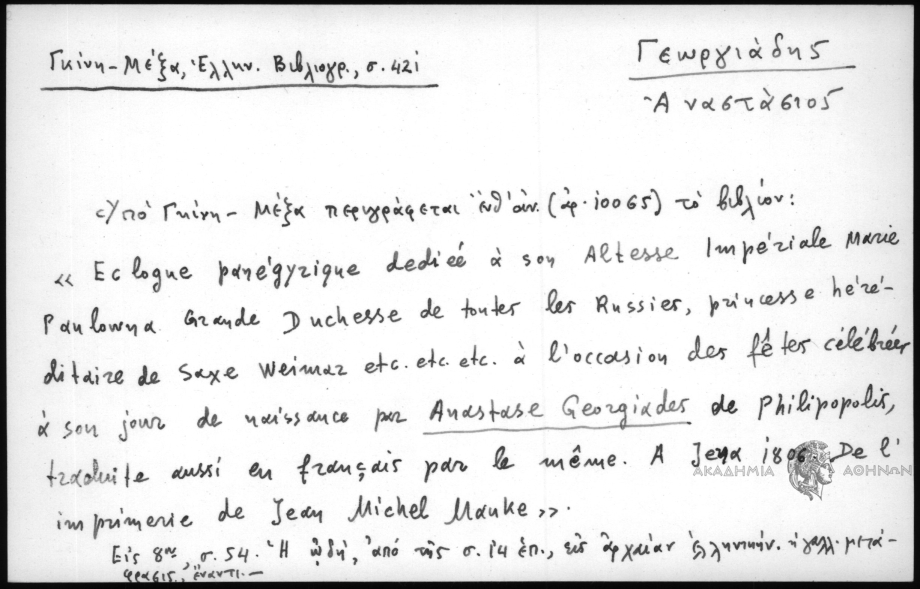 Γκίνη-Μέξα, Ἑλλην. Βιβλιογρ., σ. 421
Γεωργιάδης
Ἀναστάσιος
Ὑπό Γκίνη-Μέξα περιγράφεται ἐνθ' ἀν. (ἀρ. 10065) τὸ βιβλίον:
« Eclogue panégyrique dedieé à son Altesse Impériale Marie
Paulowna Grande Duchesse de toutes les Russies, princesse héré-
ditaire de Saxe Weimar etc. etc. etc. à l'occasion des fêtes célébrées
à son jour de naissance par Anastase Georgiades de Philipopolis,
traduite aussi en français par le même. A Jena 1806. De l'
imprimerie de Jean Michel Mauke ».
Εἰς 8ον, σ. 54. Ἡ ᾠδή, ἀπό τῆς σ. 14 ἑπ., εἰς ἀρχαίαν ἑλληνικήν. ἡ γαλλ. μετά-
φρασις, ἔναντι.—
ΑΚΑΔΗΜΙΑ ΑΘΗΝΩΝ